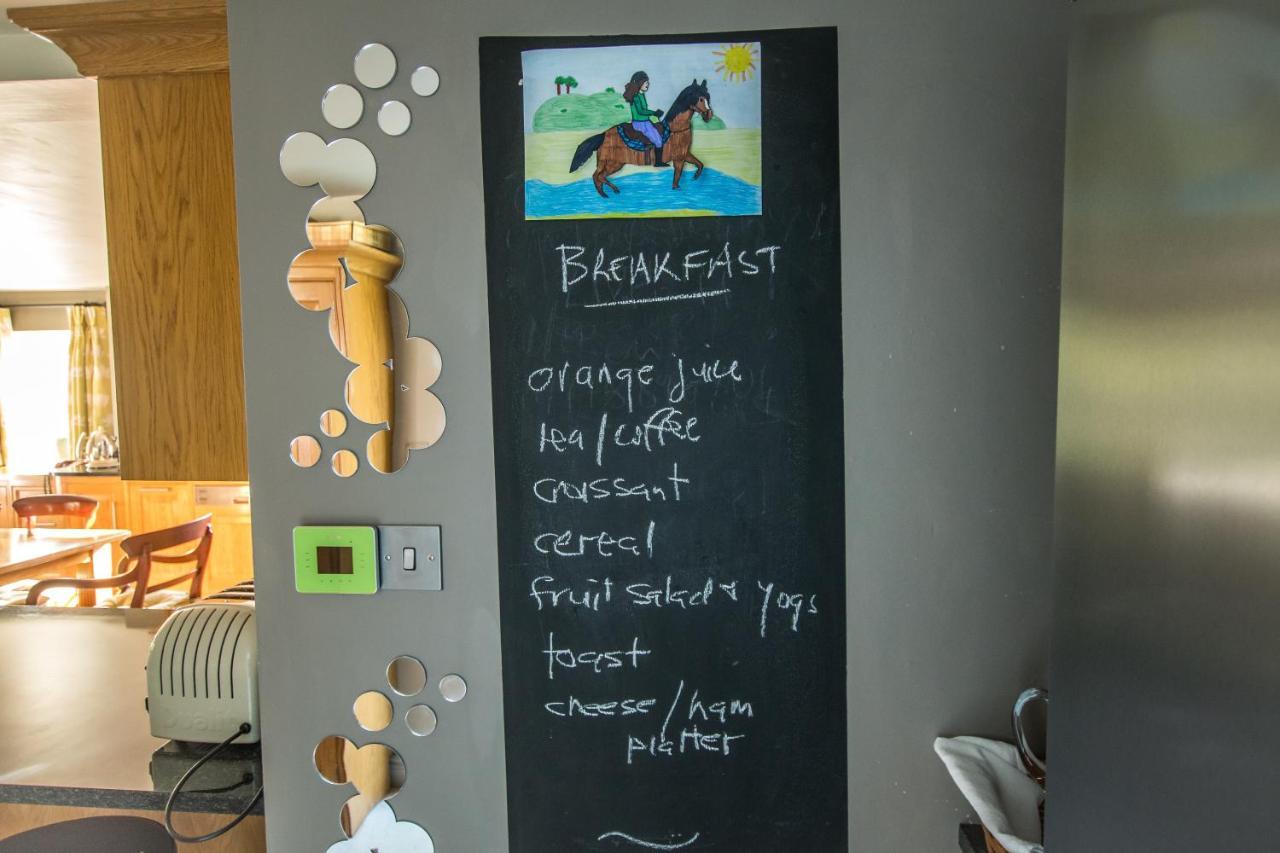 BREAKFAST
orange juice
tea/coffee
croissant
cereal
fruit salad & yogs
toast
cheese/ham
platter